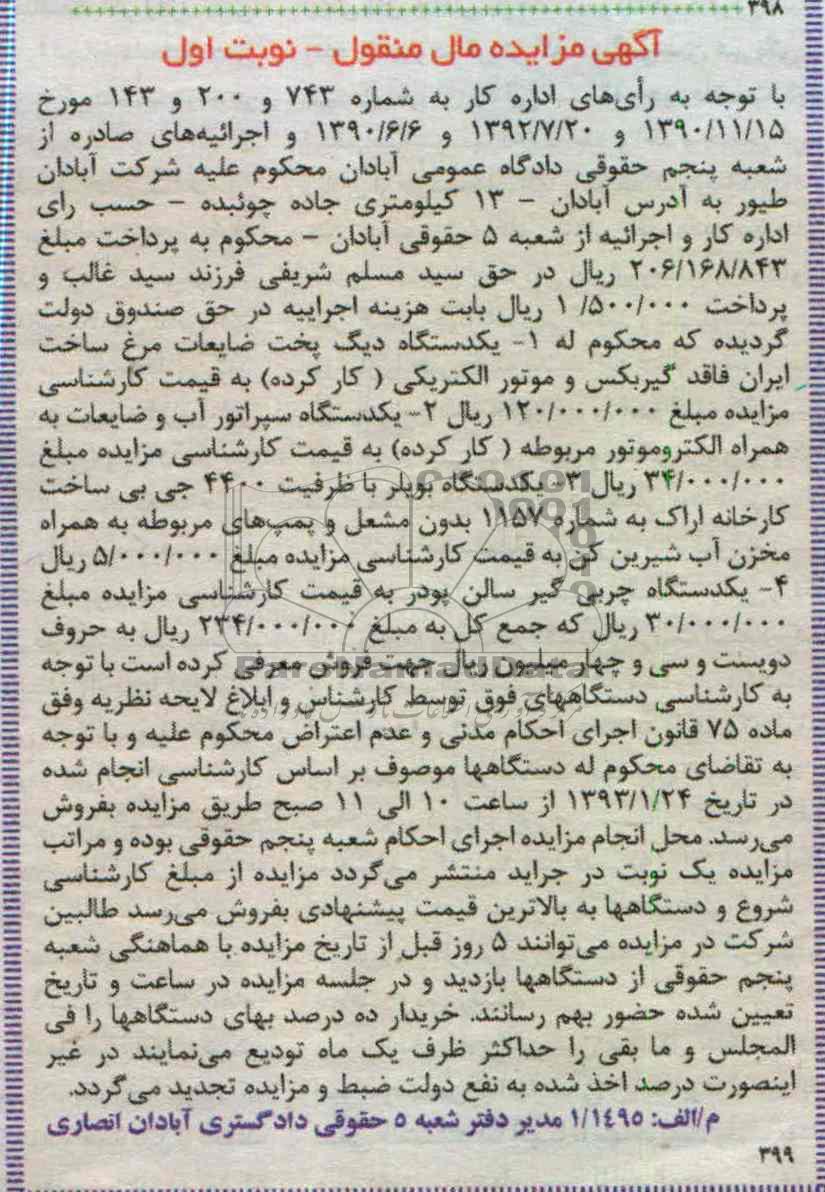 ۳۹۸
آگهی مزایده مال منقول - نوبت اول
با توجه به رأی‌های اداره کار به شماره ۷۴۳ و ۲۰۰ و ۱۴۳ مورخ
۱۳۹۰/۱۱/۱۵ و ۱۳۹۲/۷/۲۰ و ۱۳۹۰/۶/۶ و اجرائیه‌های صادره از
شعبه پنجم حقوقی دادگاه عمومی آبادان محکوم علیه شرکت آبادان
طیور به آدرس آبادان - ۱۳ کیلومتری جاده چوئبده - حسب رای
اداره کار و اجرائیه از شعبه ۵ حقوقی آبادان - محکوم به پرداخت مبلغ
۲۰۶/۱۶۸/۸۴۳ ریال در حق سید مسلم شریفی فرزند سید غالب و
پرداخت ۱/۵۰۰/۰۰۰ ریال بابت هزینه اجراییه در حق صندوق دولت
گردیده که محکوم له ۱- یکدستگاه دیگ پخت ضایعات مرغ ساخت
ایران فاقد گیربکس و موتور الکتریکی ( کار کرده) به قیمت کارشناسی
مزایده مبلغ ۱۲۰/۰۰۰/۰۰۰ ریال ۲- یکدستگاه سپراتور آب و ضایعات به
همراه الکتروموتور مربوطه ( کار کرده) به قیمت کارشناسی مزایده مبلغ
۳۴/۰۰۰/۰۰۰ ریال ۳- یکدستگاه بویلر با ظرفیت ۴۴۰۰ جی بی ساخت
کارخانه اراک به شماره ۱۱۵۷ بدون مشعل و پمپ‌های مربوطه به همراه
مخزن آب شیرین کن به قیمت کارشناسی مزایده مبلغ ۵/۰۰۰/۰۰۰ ریال
۴- یکدستگاه چربی گیر سالن پودر به قیمت کارشناسی مزایده مبلغ
۳۰/۰۰۰/۰۰۰ ریال که جمع کل به مبلغ ۲۳۴/۰۰۰/۰۰۰ ریال به حروف
دویست و سی و چهار میلیون ریال جهت فروش معرفی کرده است با توجه
به کارشناسی دستگاههای فوق توسط کارشناس و ابلاغ لایحه نظریه وفق
ماده ۷۵ قانون اجرای احکام مدنی و عدم اعتراض محکوم علیه و با توجه
به تقاضای محکوم له دستگاهها موصوف بر اساس کارشناسی انجام شده
در تاریخ ۱۳۹۳/۱/۲۴ از ساعت ۱۰ الی ۱۱ صبح طریق مزایده بفروش
می‌رسد. محل انجام مزایده اجرای احکام شعبه پنجم حقوقی بوده و مراتب
مزایده یک نوبت در جراید منتشر می‌گردد مزایده از مبلغ کارشناسی
شروع و دستگاهها به بالاترین قیمت پیشنهادی بفروش می‌رسد طالبین
شرکت در مزایده می‌توانند ۵ روز قبل از تاریخ مزایده با هماهنگی شعبه
پنجم حقوقی از دستگاهها بازدید و در جلسه مزایده در ساعت و تاریخ
تعیین شده حضور بهم رسانند. خریدار ده درصد بهای دستگاهها را فی
المجلس و ما بقی را حداکثر ظرف یک ماه تودیع می‌نمایند در غیر
اینصورت درصد اخذ شده به نفع دولت ضبط و مزایده تجدید می‌گردد.
م/الف: ۱/۱٤۹٥ مدیر دفتر شعبه ٥ حقوقی دادگستری آبادان انصاری
۳۹۹